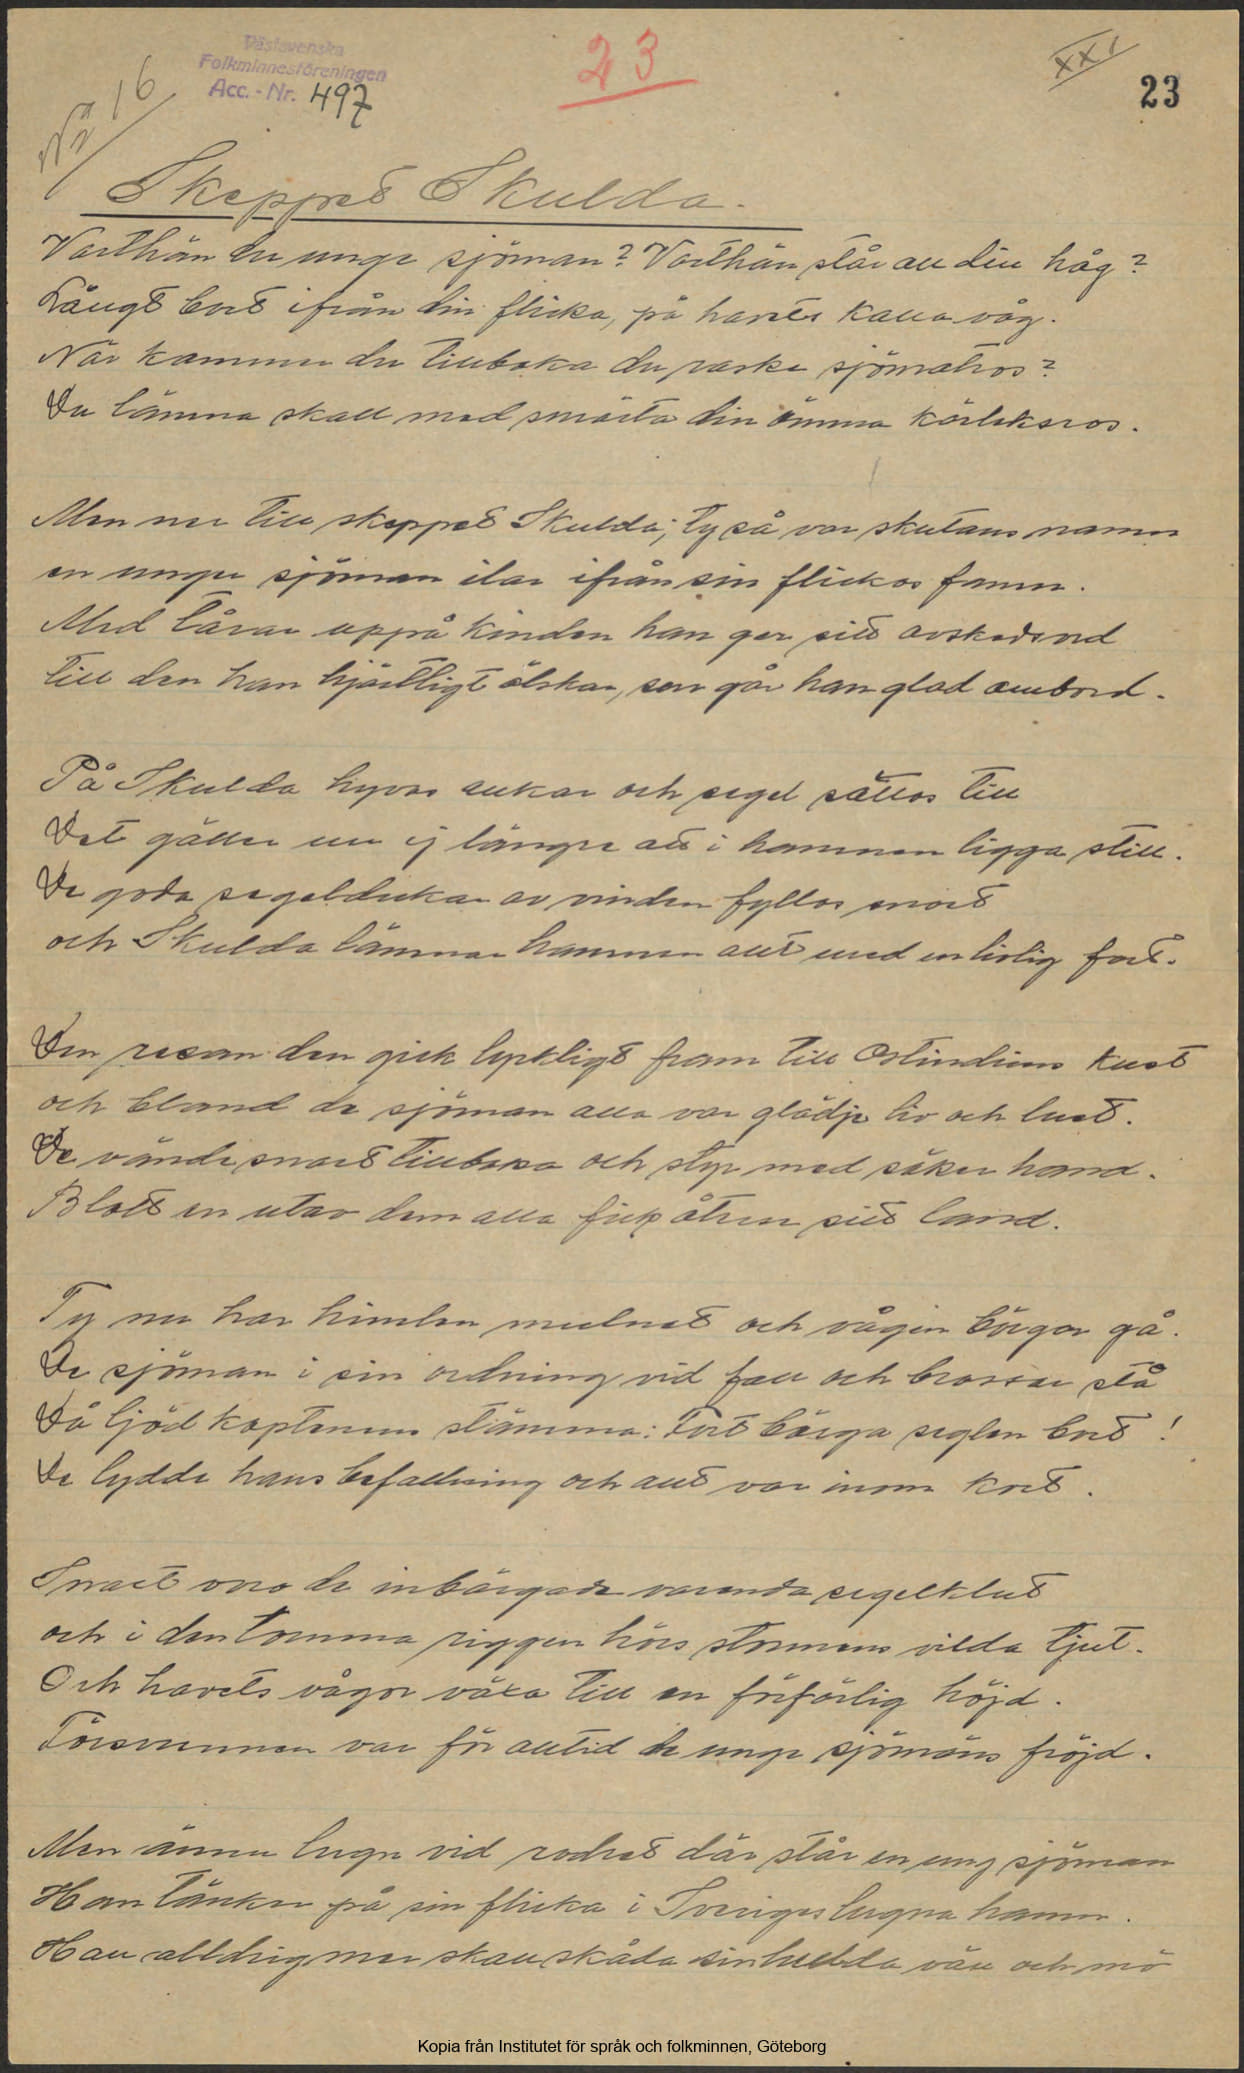 Västsvenska
Folkminnesföreningen
Acc. - Nr. 497
No 16
23
XXI
23
Skeppet Skulda.
Varthän du unge sjöman? Varthän står all din håg?
Långt bort ifrån din flicka, på havets kalla våg.
När kommer du tillbaka du raske sjömatros?
Du lämna skall med smärta din ömma kärleksros.
Men ner till skeppet Skulda; ty så var skutans namn
en unger sjöman ilar ifrån sin flickas famn.
Med tårar uppå kinden han ger sitt avskedsord
till den han hjärtligt älskar, sen går han glad ombord.
På Skulda hyvas ankar och segel sättas till
Det gäller nu ej längre att i hamnen ligga still.
De goda segeldukar av vinden fyllas snart
och Skulda lämnar hamnen allt med en livlig fart.
Den resan den gick lyckligt fram till Ostindiens kust
och bland de sjömän alla var glädje liv och lust.
De vände snart tillbaka och styr med säker hand.
Blott en utav dem alla fick återse sitt land.
Ty nu har himlen mulnat och vågen börjar gå.
De sjömän i sin ordning vid fall och brassar stå
Då ljöd kaptenens stämma: Fort bärga seglen bort!
De lydde hans befallning och allt var inom kort.
Snart voro de inbärgade varenda segelklut
och i den tomma riggen hörs stormens vilda tjut.
Och havets vågor växa till en förfärlig höjd.
Försvunnen var för alltid de unge sjömäns fröjd.
Men ännu lugn vid rodret där står en ung sjöman
Han tänker på sin flicka i Sveriges lugna hamn.
Han alldrig mer skall skåda sin hulda vän och mö
Kopia från Institutet för språk och folkminnen, Göteborg